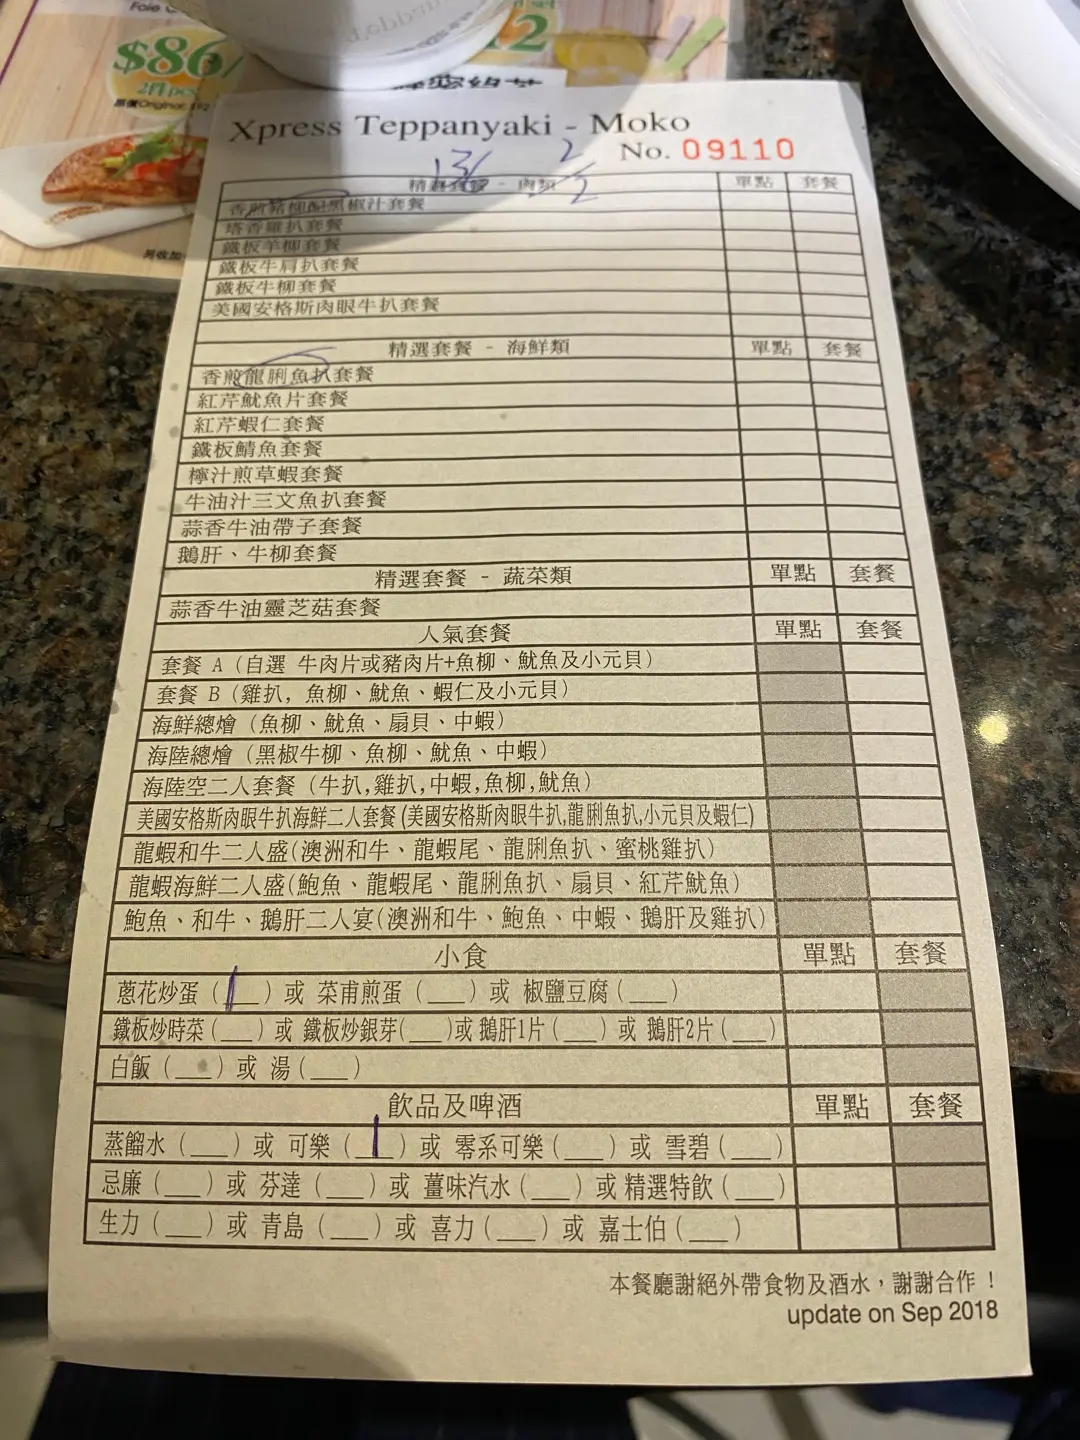 Foie
$86/
2件pcs
原價Original
12
蜂蜜綠茶
另收加一
Xpress Teppanyaki - Moko
No. 09110
13/ 2
2
精選套餐 - 肉類 單點 套餐
香煎豬柳配黑椒汁套餐
塔香雞扒套餐
鐵板羊柳套餐
鐵板牛肩扒套餐
鐵板牛柳套餐
美國安格斯肉眼牛扒套餐
精選套餐 - 海鮮類 單點 套餐
香煎龍脷魚扒套餐
紅芹魷魚片套餐
紅芹蝦仁套餐
鐵板鯖魚套餐
檸汁煎草蝦套餐
牛油汁三文魚扒套餐
蒜香牛油帶子套餐
鵝肝、牛柳套餐
精選套餐 - 蔬菜類 單點 套餐
蒜香牛油靈芝菇套餐
人氣套餐 單點 套餐
套餐 A（自選 牛肉片或豬肉片+魚柳、魷魚及小元貝）
套餐 B（雞扒, 魚柳、魷魚、蝦仁及小元貝）
海鮮總燴（魚柳、魷魚、扇貝、中蝦）
海陸總燴（黑椒牛柳、魚柳、魷魚、中蝦）
海陸空二人套餐（牛扒,雞扒,中蝦,魚柳,魷魚）
美國安格斯肉眼牛扒海鮮二人套餐(美國安格斯肉眼牛扒,龍脷魚扒,小元貝及蝦仁)
龍蝦和牛二人盛(澳洲和牛、龍蝦尾、龍脷魚扒、蜜桃雞扒)
龍蝦海鮮二人盛(鮑魚、龍蝦尾、龍脷魚扒、扇貝、紅芹魷魚)
鮑魚、和牛、鵝肝二人宴(澳洲和牛、鮑魚、中蝦、鵝肝及雞扒)
小食 單點 套餐
蔥花炒蛋（_1_）或 菜甫煎蛋（___）或 椒鹽豆腐（___）
鐵板炒時菜（___）或 鐵板炒銀芽(___)或 鵝肝1片（___）或 鵝肝2片（___）
白飯（___）或 湯（___）
飲品及啤酒 單點 套餐
蒸餾水（___）或 可樂（_1_）或 零系可樂（___）或 雪碧（___）
忌廉（___）或 芬達（___）或 薑味汽水（___）或 精選特飲（___）
生力（___）或 青島（___）或 喜力（___）或 嘉士伯（___）
本餐廳謝絕外帶食物及酒水，謝謝合作！
update on Sep 2018